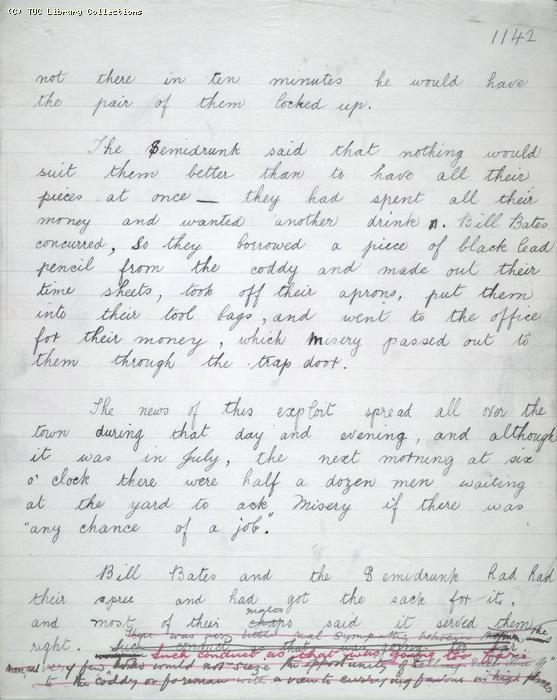 (C) TUC Library Collections
1142
not there in ten minutes he would have
the pair of them locked up.
The Semidrunk said that nothing would
suit them better than to have all their
pieces at once — they had spent all their
money and wanted another drink. Bill Bates
concurred, So they borrowed a piece of black lead
pencil from the coddy and made out their
time sheets, took off their aprons, put them
into their tool bags, and went to the office
for their money, which Misery passed out to
them through the trap door.
The news of this exploit spread all over the
town during that day and evening, and although
it was in July, the next morning at six
o'clock there were half a dozen men waiting
at the yard to ask Misery if there was
"any chance of a job".
Bill Bates and the Semidrunk had had
their spree and had got the sack for it,
mates
and most of their chaps said it served them
There was very little real sympathy between
right. Such conduct that was going too far
Such conduct as that was going too far
very few would not seize the opportunity of
to the coddy or foreman with a view to currying favour